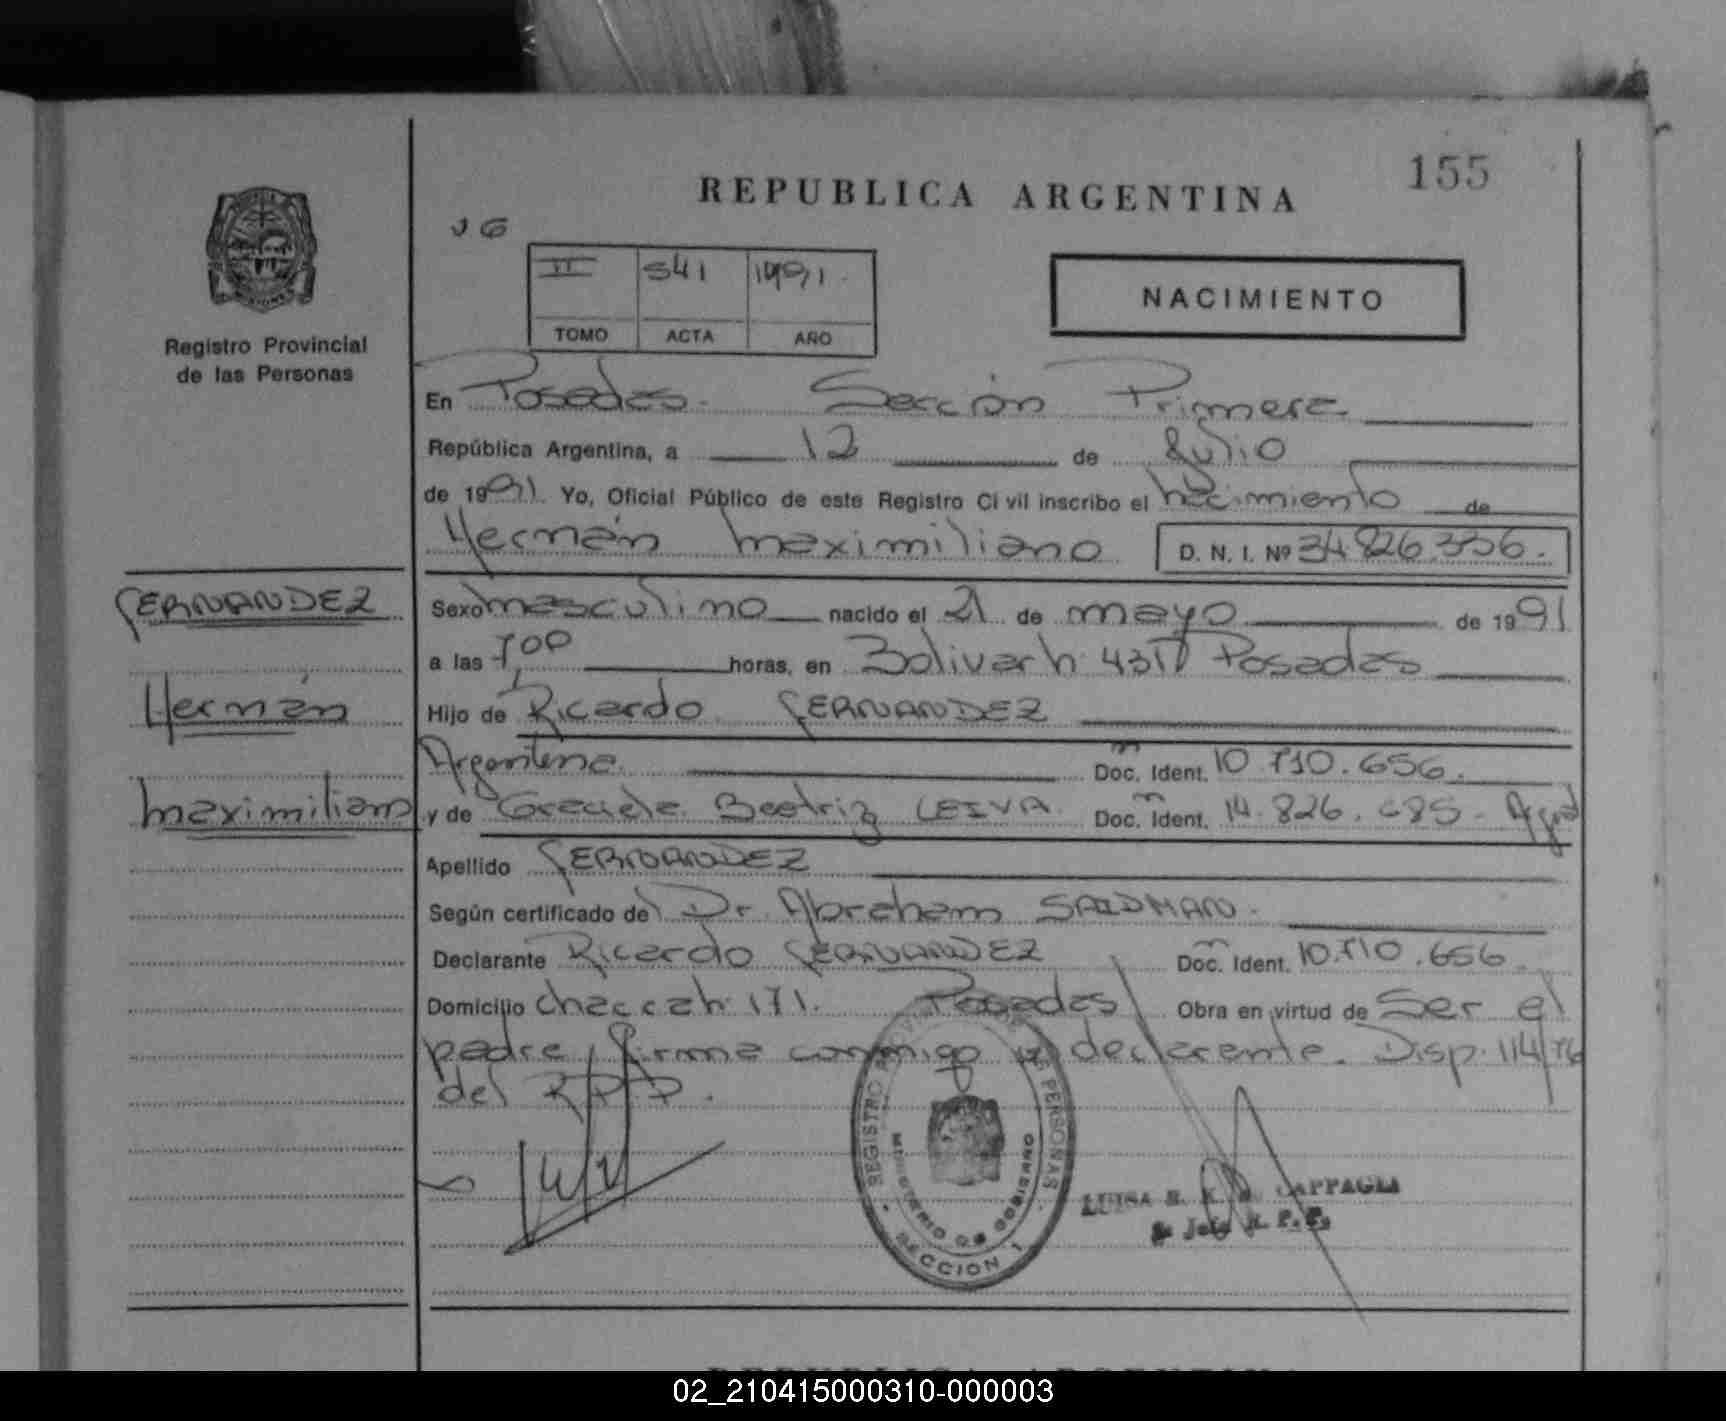 155
REPUBLICA ARGENTINA
II 541 1991
TOMO ACTA AÑO
NACIMIENTO
Registro Provincial
de las Personas
En Posadas. Sección Primera
República Argentina, a 12 de Julio
de 1991 Yo, Oficial Público de este Registro Civil inscribo el nacimiento de
Hernán Maximiliano D. N. I. Nº 34.826.336.
FERNANDEZ
Hernán
Maximiliano
Sexo masculino nacido el 21 de mayo de 1991
a las 7,00 horas, en Bolivar h: 431 Posadas
Hijo de Ricardo FERNANDEZ
Argentina. Doc. Ident. 10.710.656.
y de Graciela Beatriz LEIVA. Doc. Ident. 14.826.685.
Apellido FERNANDEZ
Según certificado del Dr. Abraham SAIDMAN.
Declarante Ricardo FERNANDEZ Doc. Ident. 10.710.656.
Domicilio chacra h: 171. Posadas Obra en virtud de Ser el
padre, firma conmigo el declarante. Disp. 114/76
del R.P.P.
REGISTRO PROVINCIAL DE LAS PERSONAS
MINISTERIO DE GOBIERNO
SECCION 1
LUISA CAPPAGLI
02_210415000310-000003